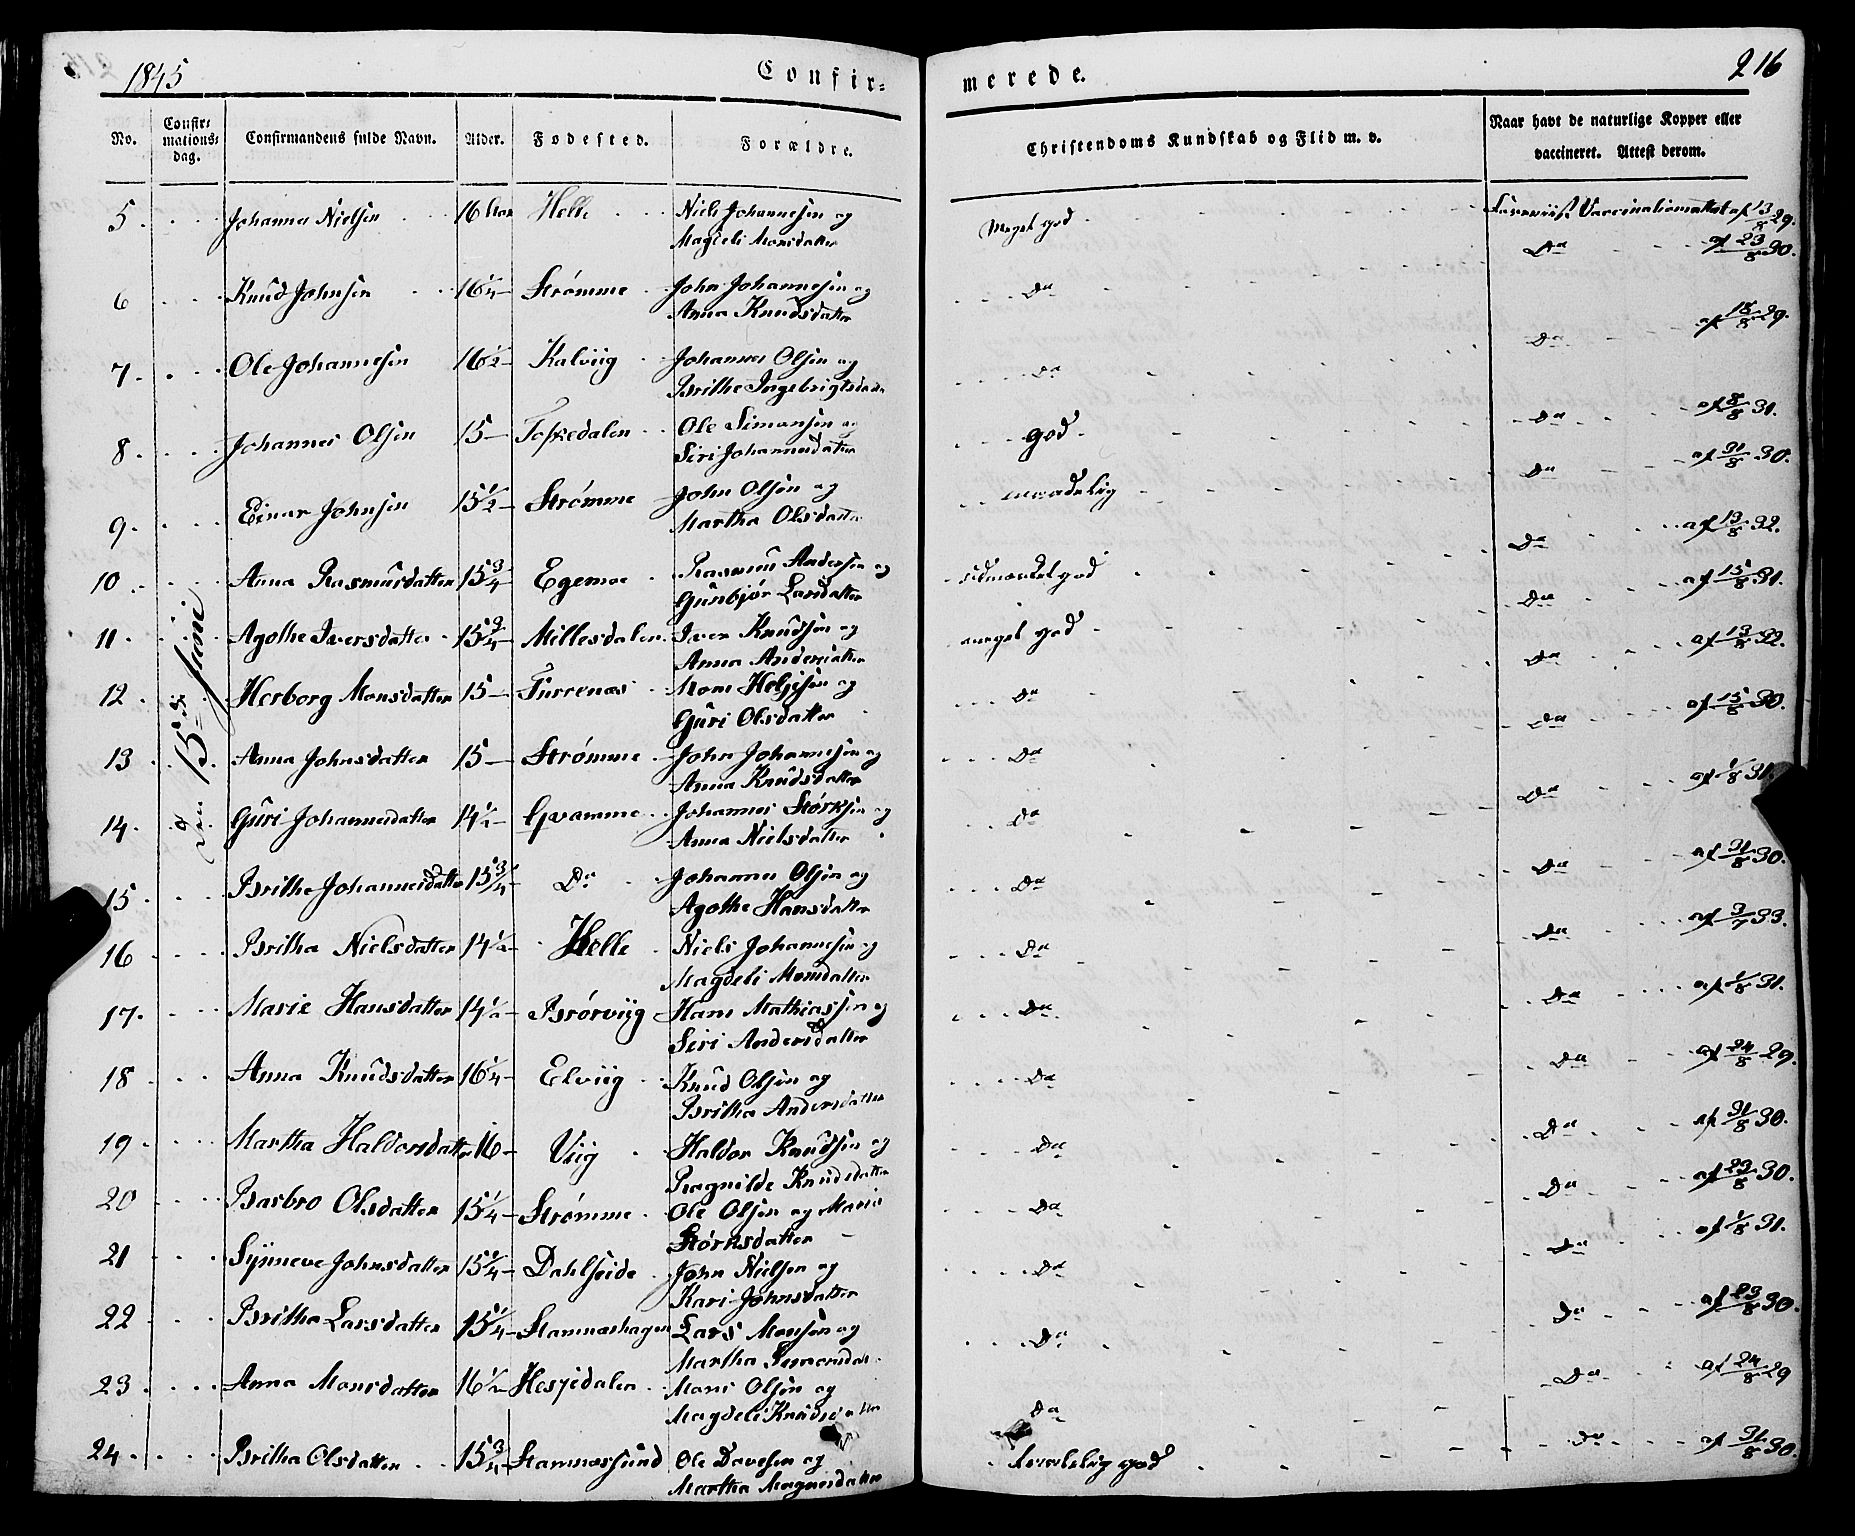 1845 Confir= merede. 216
No. Confir= mations= dag. Confirmandens fulde Navn. Alder. Fødested. Forældre. Christendoms Kundskab og Flid m. v. Naar havt de naturlige Kopper eller vaccineret. Attest derom.
Den 15de Juni
5 Johannes Nielsen 16 Helle Niels Johannesen og Meget god Vaccinationattest af 13/8 29.
Magdeli Monsdatter
6 Knud Johnsen 16 1/4 Strømme John Johannesen og Do Do af 23/8 30.
Anna Knudsdatter
7 Ole Johannesen 16 1/2 Kalviig Johannes Olsen og Do Do af 18/8 29.
Brithe Ingebrigtsdatter
8 Johannes Olsen 15 Toskedalen Ole Simonsen og god Do af 8/8 31.
Siri Johannesdatter
9 Einar Johnsen 15 1/2 Strømme John Olsen og maadelig Do af 31/8 30.
Martha Olsdatter
10 Anna Rasmusdatter 15 3/4 Egemoe Rasmus Andersen og udmærket god Do af 13/8 32.
Gunbjør Larsdatter
11 Agathe Iversdatter 15 3/4 Millesdalen Iver Knudsen og meget god Do af 15/8 31.
Anna Andersdatter
12 Herborg Monsdatter 15 Furrenæs Mons Helgesen og Do Do af 13/8 32.
Guri Olsdatter
13 Anna Johnsdatter 15 Strømme John Johannesen og Do Do af 15/8 30.
Anna Knudsdatter
14 Guri Johannesdatter 14 1/2 Qvamme Johannes Størksen og Do Do af 1/8 31.
Anna Nielsdatter
15 Brithe Johannesdatter 15 3/4 Do Johannes Olsen og Do Do af 31/8 30.
Agothe Hansdatter
16 Britha Nielsdatter 14 1/2 Helle Niels Johannesen og Do Do af 3/7 33.
Magdeli Monsdatter
17 Marie Hansdatter 14 1/2 Brørviig Hans Mathiassen og Do Do af 1/8 31.
Siri Andersdatter
18 Anna Knudsdatter 16 1/4 Elviig Knud Olsen og Do Do af 24/8 29.
Britha Andersdatter
19 Martha Haldorsdatter 16 Viig Haldor Knudsen og Do Do af 31/8 30.
Ragnilde Knudsdatter
20 Barbro Olsdatter 15 1/4 Strømme Ole Olsen og Marie Do Do af 23/8 30.
Størksdatter
21 Synneve Johnsdatter 15 1/4 Dahlseide John Nielsen og Do Do af 1/8 31.
Kari Johnsdatter
22 Britha Larsdatter 15 1/4 Stamneshagen Lars Monsen og Do Do af 23/8 30.
Martha
23 Anna Monsdatter 16 1/2 Hesjedalen Mons Olsen og Do Do af 24/8 29
Magdeli Knudsdatter
24 Britha Olsdatter 15 3/4 Stamnessund Ole Davesen og god Do af 31/8 30.
Martha Magnesdatter